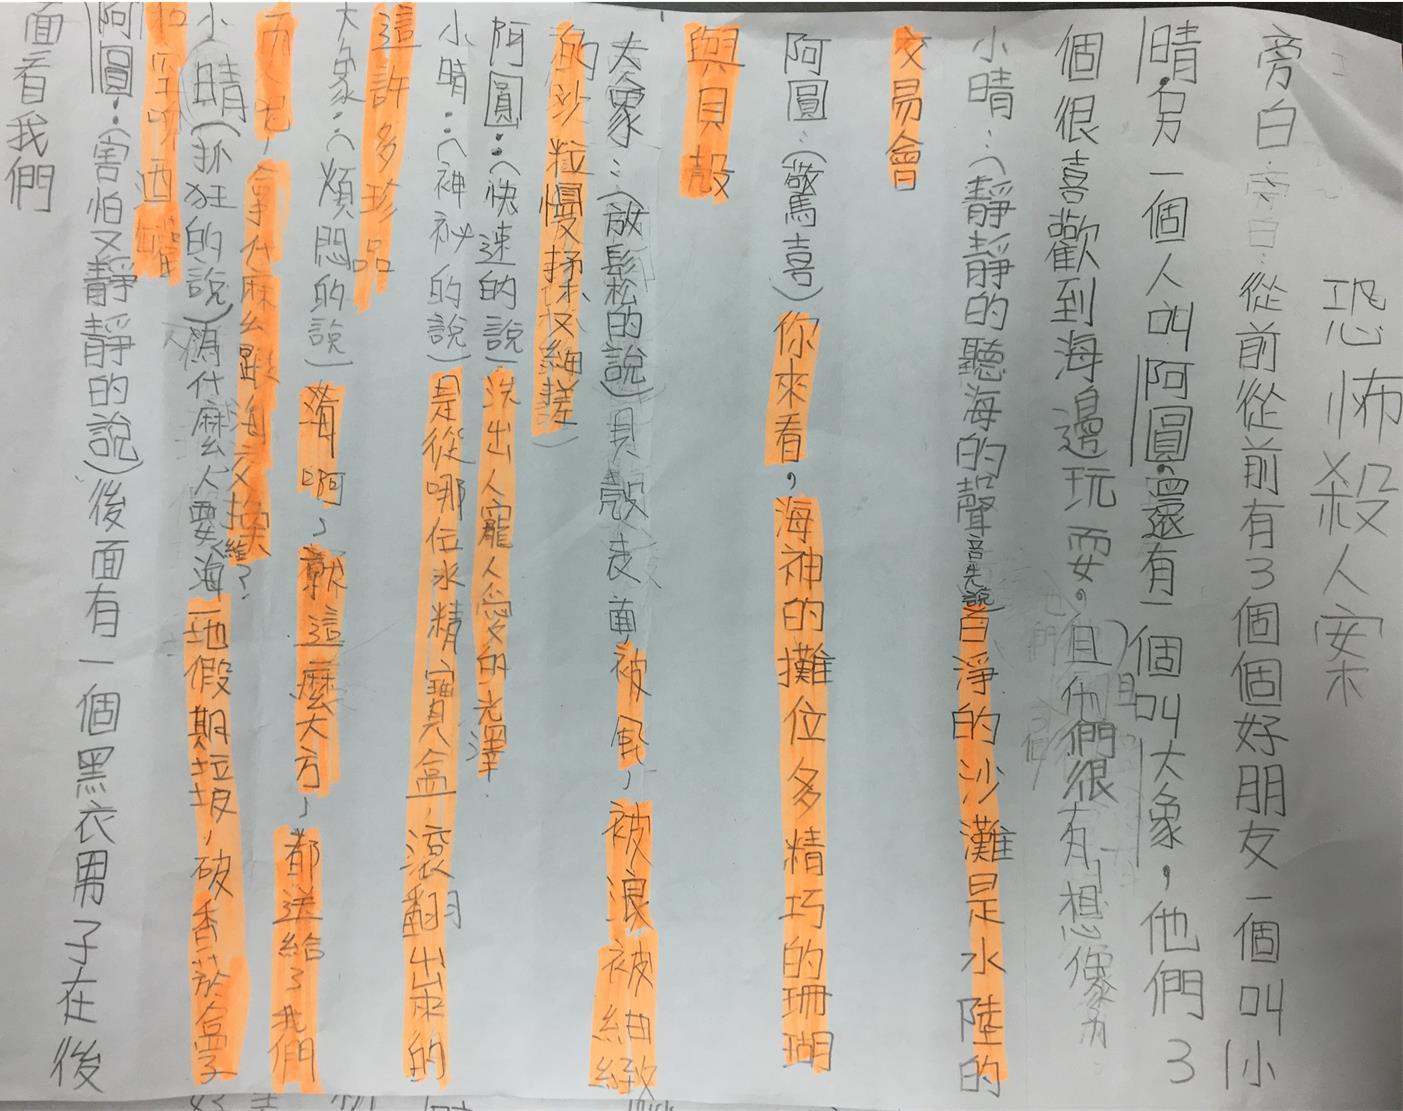 恐怖殺人案
旁白：從前從前有3個個好朋友一個叫小
晴，另一個人叫阿圓，還有一個叫大象，他們3
個很喜歡到海邊玩耍。且他們很有想像力
小晴：（靜靜的聽海的聲音先說）白淨的沙灘是水陸的
交易會
阿圓：（驚喜）你來看，海神的攤位多精巧的珊瑚
與貝殼
大象：（放鬆的說）貝殼表面，被風，被浪被細緻
的沙粒慢揉又細搓
阿圓：（快速的說）洗出人寵人愛的光澤
小晴：（神祕的說）是從哪位水精寶盒，滾翻出來的
這許多珍品
大象：（煩悶的說）海啊，就這麼大方，都送給了我們
而我，拿什麼跟海交換
小晴（抓狂的說）為什麼人要給海一地假期垃圾，破香菸盒子
和空啤酒罐
阿圓：（害怕又靜靜的說）後面有一個黑衣男子在後
面看我們